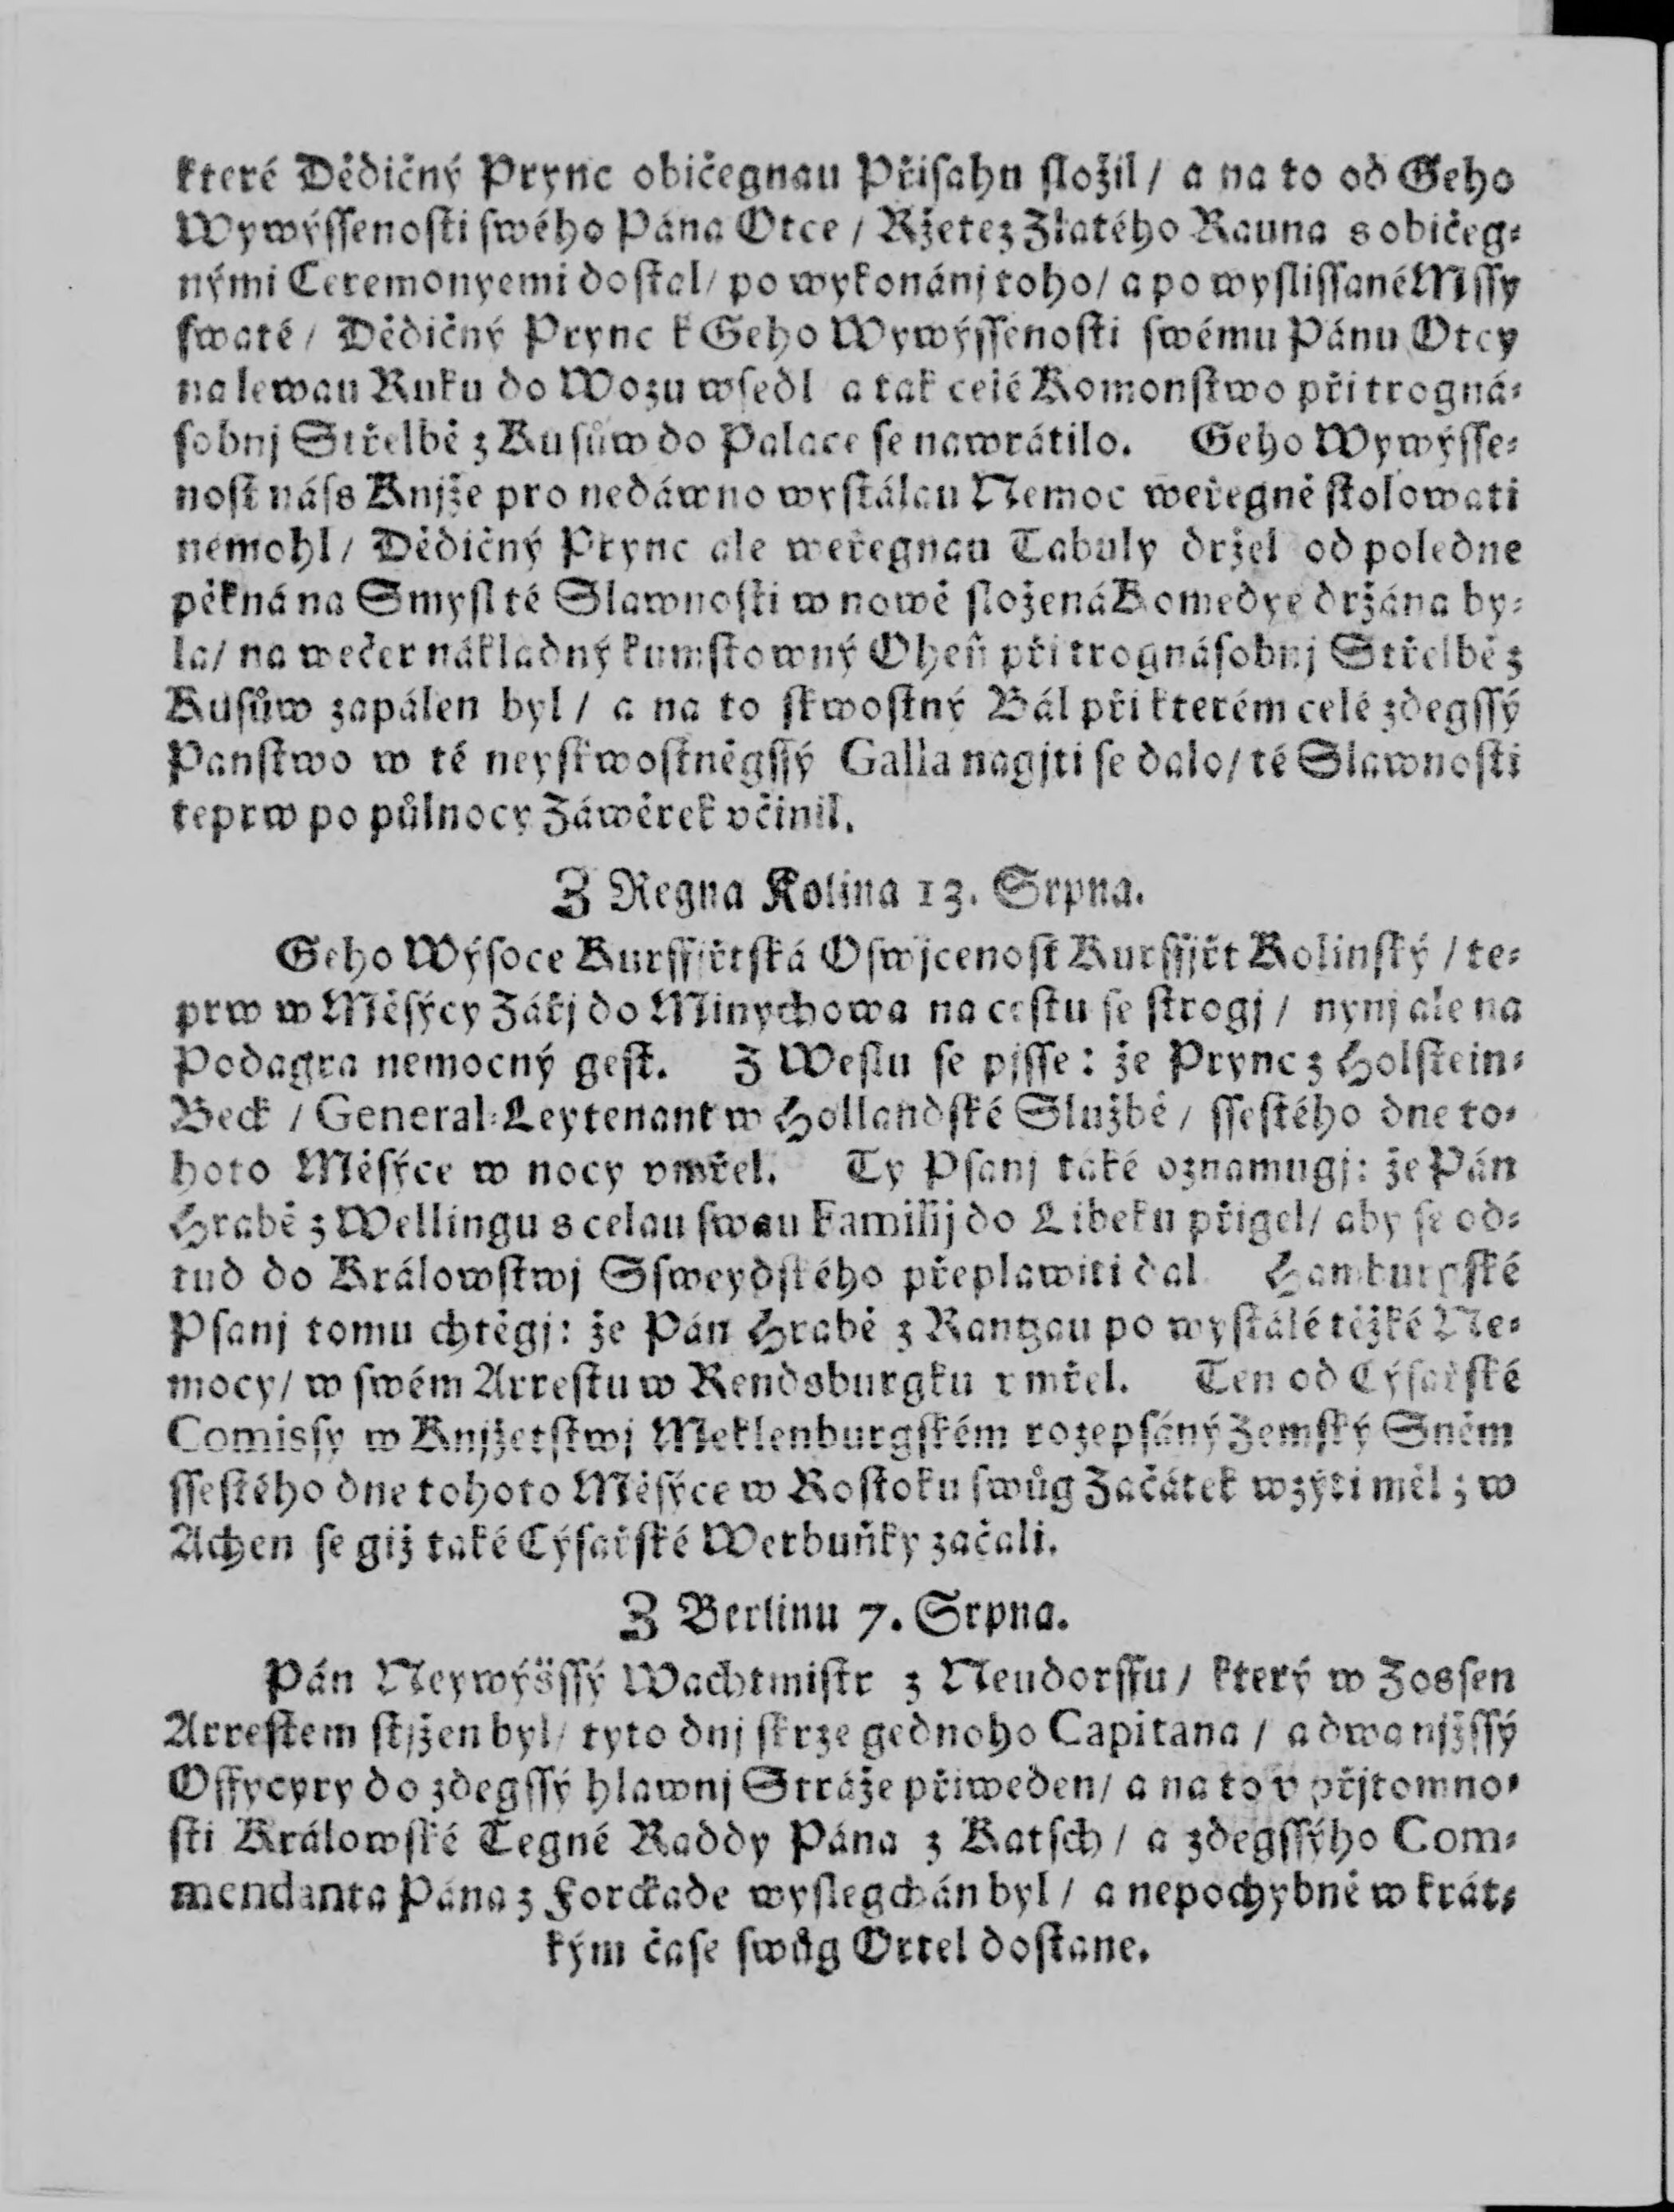 které Dědičný Prync običegnau Přiſahu ſložil / a na to od Geho
Wywýſſenoſti ſwého Pána Otce / Ržetez Zlatého Rauna s običeg⸗
nými Ceremonyemi doſtal / po wykonánj toho / a po wyſliſſané Mſſy
ſwaté / Dědičný Prync k Geho Wywýſſenoſti ſwému Pánu Otcy
na lewau Ruku do Wozu wſedl a tak celé Komonſtwo při trogná⸗
ſobnj Střelbě z Kuſůw do Palace ſe nawrátilo. Geho Wywýſſe⸗
noſt náſs Knjže pro nedáwno wyſtálau Nemoc weřegně ſtolowati
nemohl / Dědičný Prync ale weřegnau Tabuly držel od poledne
pěkná na Smyſl té Slawnoſti w nowě ſložená Komedye držána by⸗
la / na wečer nákladný kumſtowný Oheň při trognáſobnj Střelbě z
Kuſůw zapálen byl / a na to ſkwoſtný Bál při kterém celé zdegſſý
Panſtwo w té neyſkwoſtněgſſý Galla nagjti ſe dalo / té Slawnoſti
teprw po půlnocy Záwěrek včinil.
Z Regna Kolina 13. Srpna.
Geho Wýſoce Kurffjřtſká Oſwjcenoſt Kurffjřt Kolinſký / te⸗
prw w Měſýcy Zářj do Minychowa na ceſtu ſe ſtrogj / nynj ale na
Podagra nemocný geſt. Z Weſlu ſe pjſſe : že Prync z Holſtein⸗
Beck / General⸗Leytenant w Hollandſké Službě / ſſeſtého dne to⸗
hoto Měſýce w nocy vmřel. Ty Pſanj také oznamugj: že Pán
Hrabě z Wellingu s celau ſwau Familij do Libeku přigel / aby ſe od⸗
tud do Králowſtwj Sſweydſkého přeplawiti dal Hamburgſké
Pſanj tomu chtěgj: že Pán Hrabě z Rantzau po wyſtálé těžké Ne⸗
mocy / w ſwém Arreſtu w Rendsburgku vmřel. Ten od Cýſařſké
Comisſy w Knjžetſtwj Meklenburgſkém rozepſáný Zemſký Sněm
ſſeſtého dne tohoto Měſýce w Roſtoku ſwůg Začátek wzýti měl ; w
Achen ſe giž také Cýſařſké Werbuňky začali.
Z Berlinu 7. Srpna.
Pán Neywýšſſý Wachtmiſtr z Neudorffu / který w Zosſen
Arreſtem ſtjžen byl / tyto dnj ſkrze gednoho Capitana / a dwa njžſſý
Offycyry do zdegſſý hlawnj Stráže přiweden / a na to v přjtomno⸗
ſti Králowſké Tegné Raddy Pána z Katſch / a zdegſſýho Com⸗
mendanta Pána z Forckade wyſlegchán byl / a nepochybně w krát⸗
kým čaſe ſwůg Ortel doſtane.